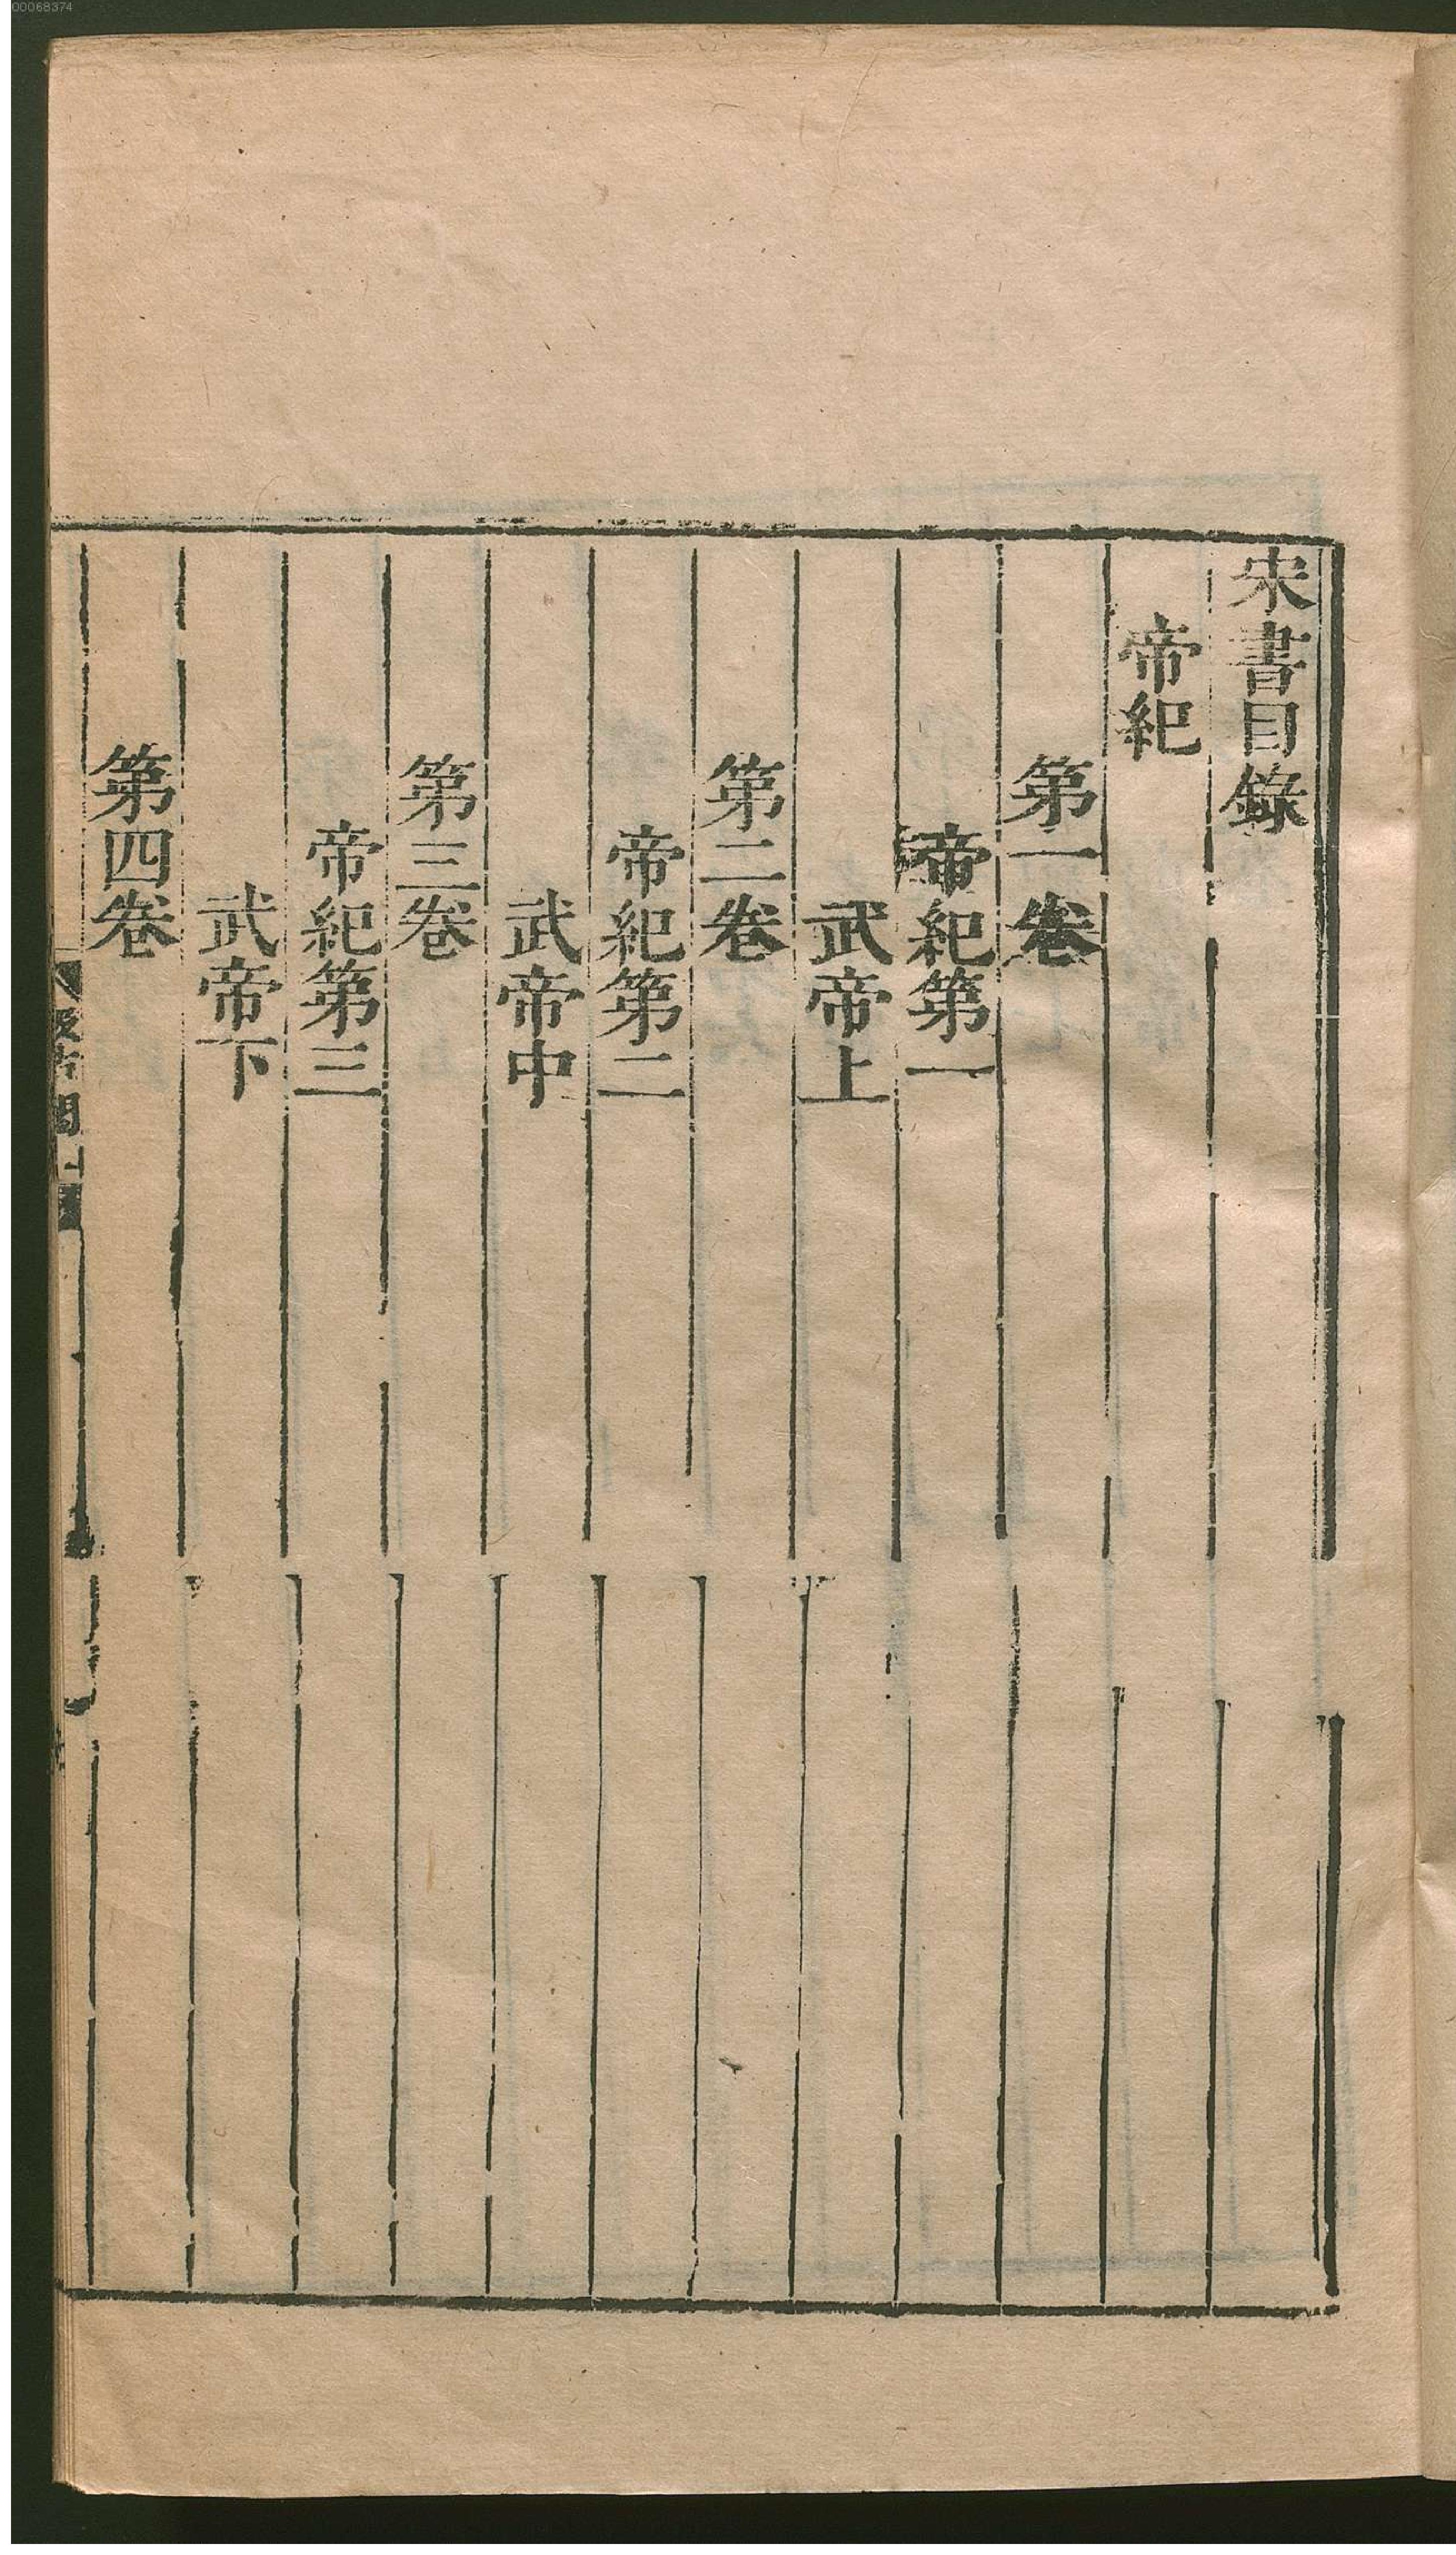 00068374
宋書目錄
帝紀
第一卷
帝紀第一
武帝上
第二卷
帝紀第二
武帝中
第三卷
帝紀第三
武帝下
第四卷